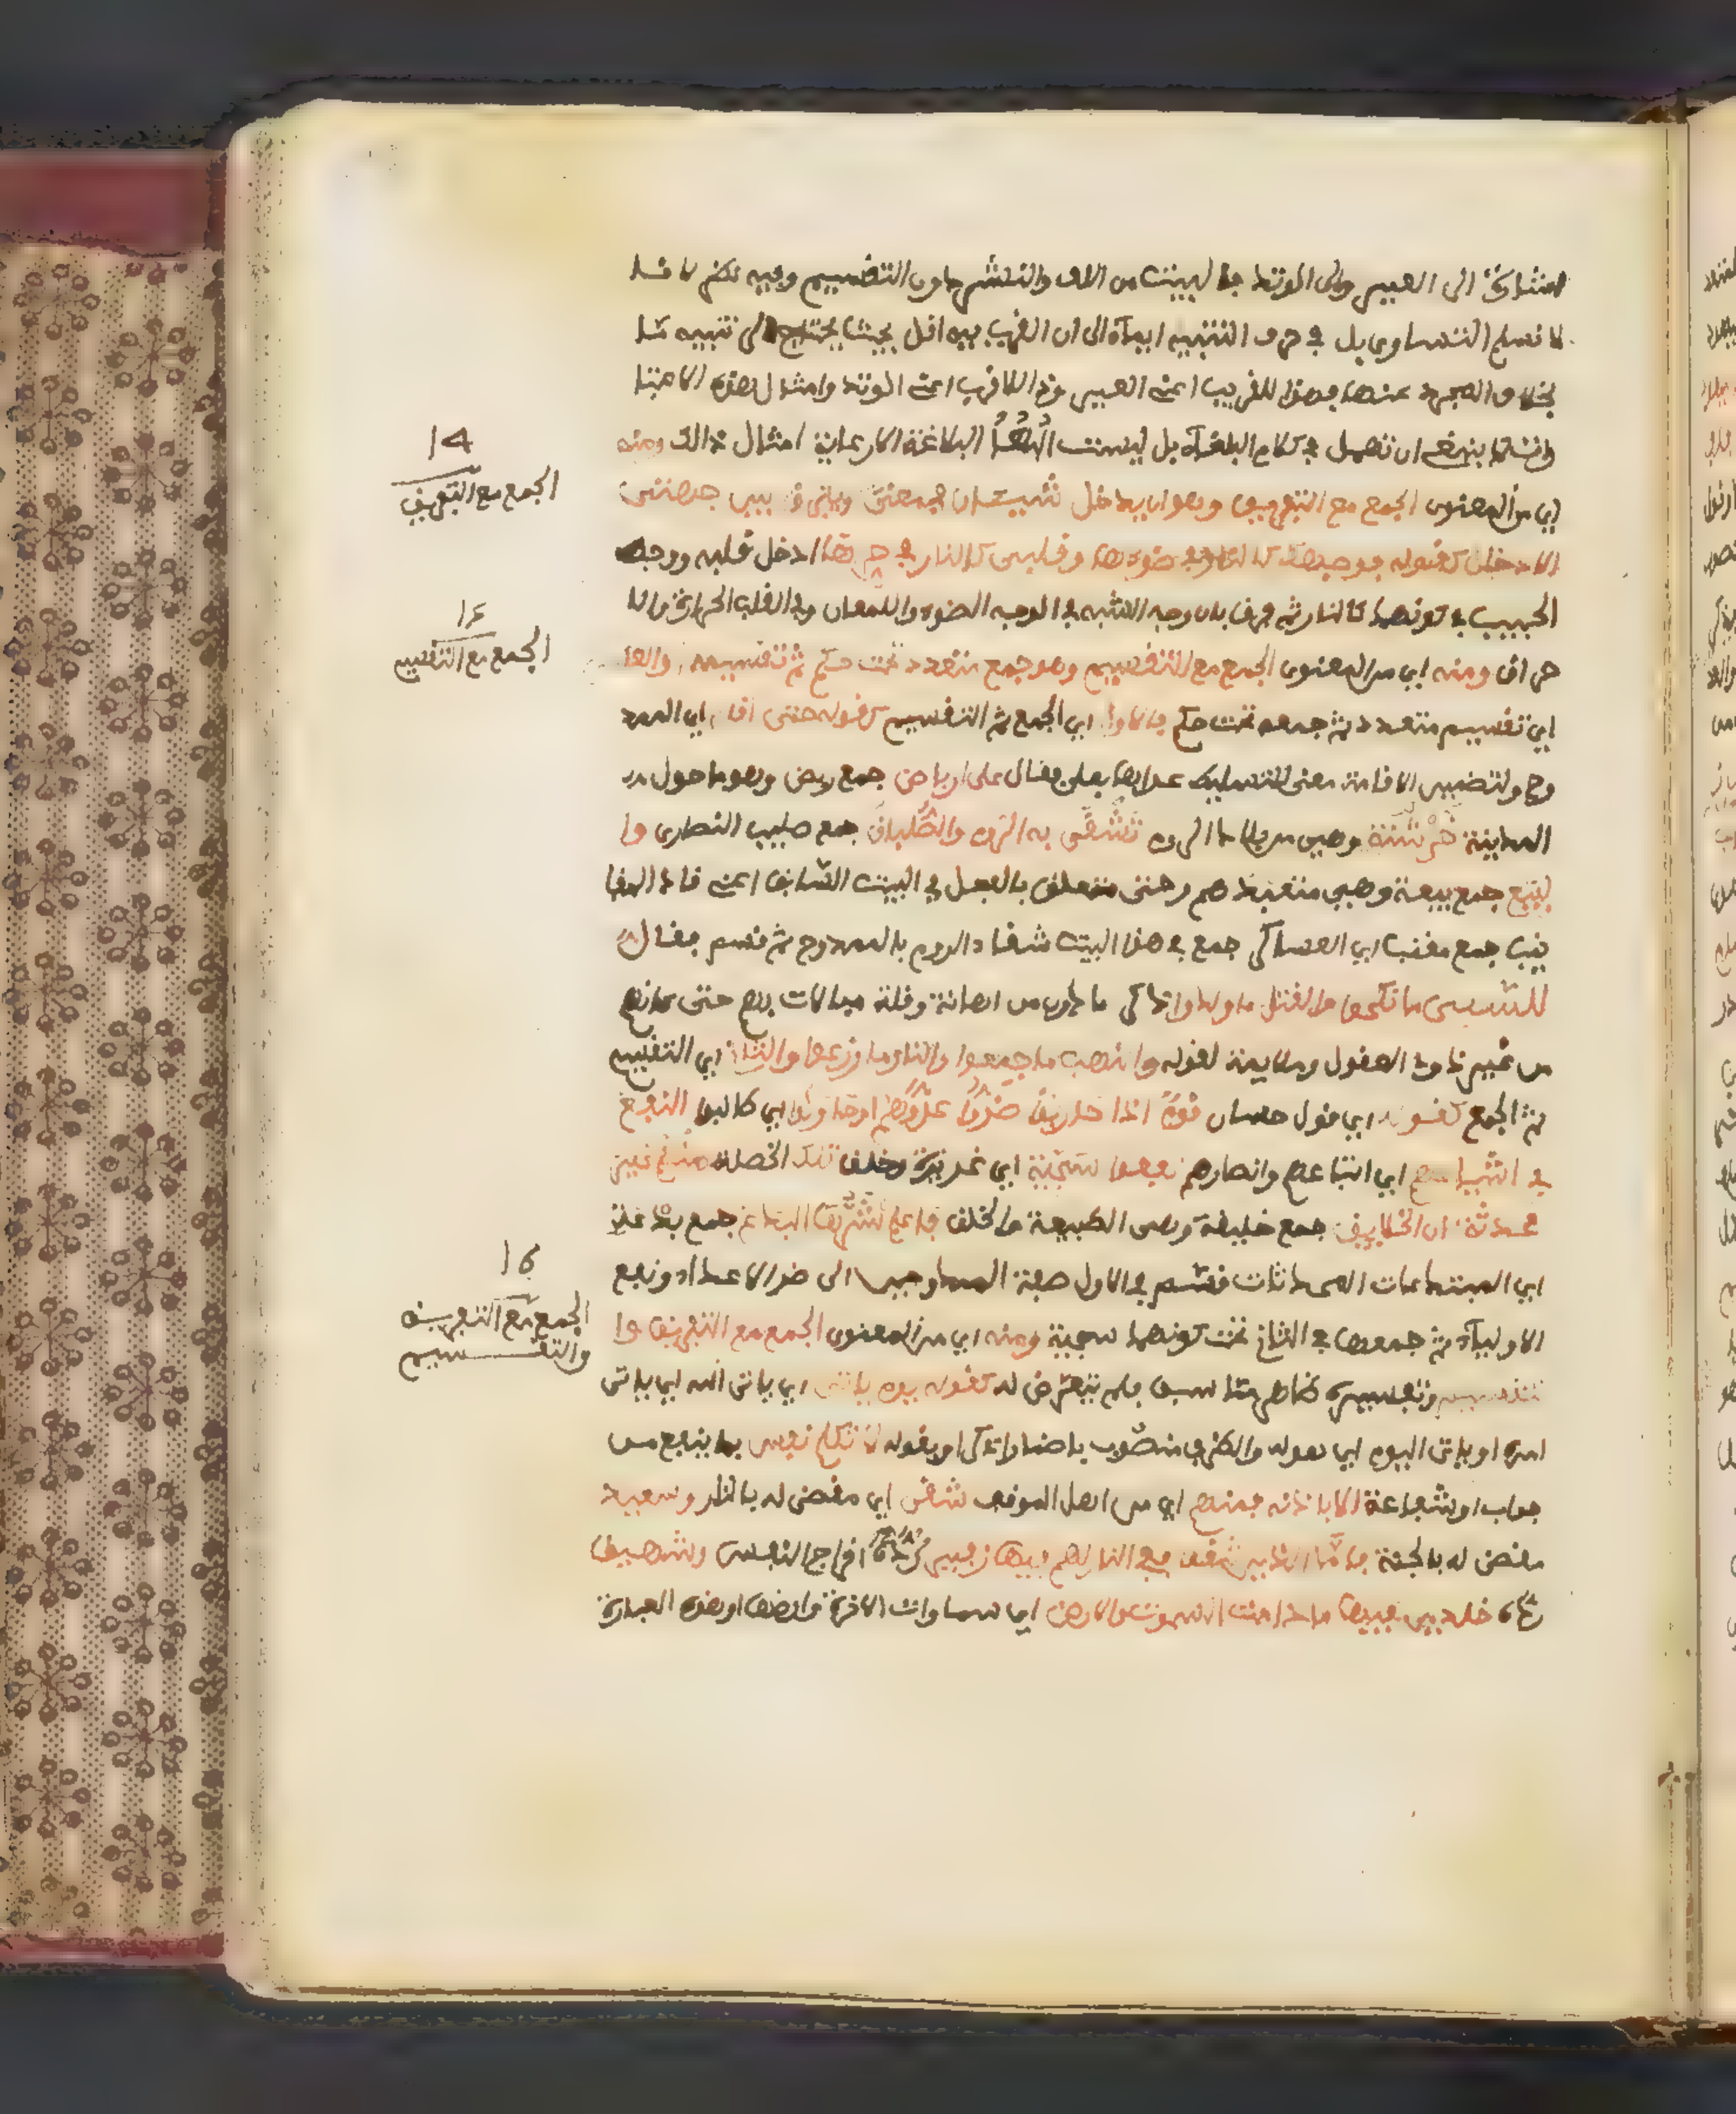 اشارة الى العير والى الوتد فالبيت من اللف والنشر دون التقسيم وفيه نظر لانا
لا نسلم التساوي بل في حرف التنبيه ايماء الى ان القرب فيه اقل بحيث يحتاج الى تنبيه ما
بخلاف المجرد عنها فهذا للقريب اعني العير وذا للاقرب اعني الوتد وامثال هذه الاعتبا
رات لا ينبغي ان تهمل في كلام البلغاء بل ليست البلاغة الا رعاية امثال ذالك ومنه
اي من المعنوي الجمع مع التفريق وهو ان يدخل شيئان في معنى ويفرق بين جهتي
الادخال كقوله فوجهك كالنار في ضوءها وقلبي كالنار في حرها ادخل قلبه ووجه
الحبيب في كونهما كالنار ثم فرق بان وجه الشبه في الوجه الضوء واللمعان وفي القلب الحرارة والا
حراق ومنه اي من المعنوي الجمع مع التقسيم وهو جمع متعدد تحت حكم ثم تقسيمه او العكس
اي تقسيم متعدد ثم جمعه تحت حكم فالاول اي الجمع ثم التقسيم كقوله حتى اقام اي الممد
وح ولتضمين الاقامة معنى التسليط عداها بعلى فقال على ارباض جمع ربض وهو ما حول
المدينة خرشنة وهي من بلاد الروم تشقى به الروم والصلبان جمع صليب النصارى وا
لبيع جمع بيعة وهي متعبدهم وحتى متعلق بالفعل في البيت السابق اعني قاد المقا
نب جمع مقنب اي العساكر جمع في هذا البيت شقاء الروم بالممدوح ثم قسم فقال
للسبي ما نكحوا والقتل ما ولدوا ذكر ما دون من اهانة وقلة مبالات بهم حتى كانهم
من غير ذوي العقول وملايمة لقوله والنهب ما جمعوا والنار ما زرعوا والثاني اي التقسيم
ثم الجمع كقوله اي قول حسان قوم اذا حاربوا ضروا عدوهم او حاولوا اي طلبوا النفع
في اشياعهم اي اتباعهم وانصارهم نفعوا سجية اي غريزة وخلق تلك الخصلة منهم غير
محدثة ان الخلايق جمع خليقة وهي الطبيعة والخلق فاعلم شرها البدع جمع بدعة
اي المبتدعات المحدثات قسم في الاول صفة الممدوحين الى ضر الاعداء ونفع
الاولياء ثم جمعها في الثاني تحت كونهما سجية ومنه اي من المعنوي الجمع مع التفريق وا
لتقسيم وتفسيره ظاهر مما سبق فلم يتعرض له كقوله يوم ياتي اي ياتي الله اي ياتي
امره او ياتي اليوم اي هوله والظرف منصوب باضمار اذكر او بقوله لا تكلم نفس بما ينفع من
جواب او شفاعة الا باذنه فمنهم اي من اهل الموقف شقي اي مقضى له بالنار وسعيد
مقضى له بالجنة فاما الذين شقوا ففي النار لهم فيها زفير اخراج النفس وشهيق
رده خلدين فيها ما دامت السموت والارض اي سماوات الاخرة وارضها او هذه العبارة
14
الجمع مع التفريق
15
الجمع مع التقسيم
16
الجمع مع التفريق
والتقسيم